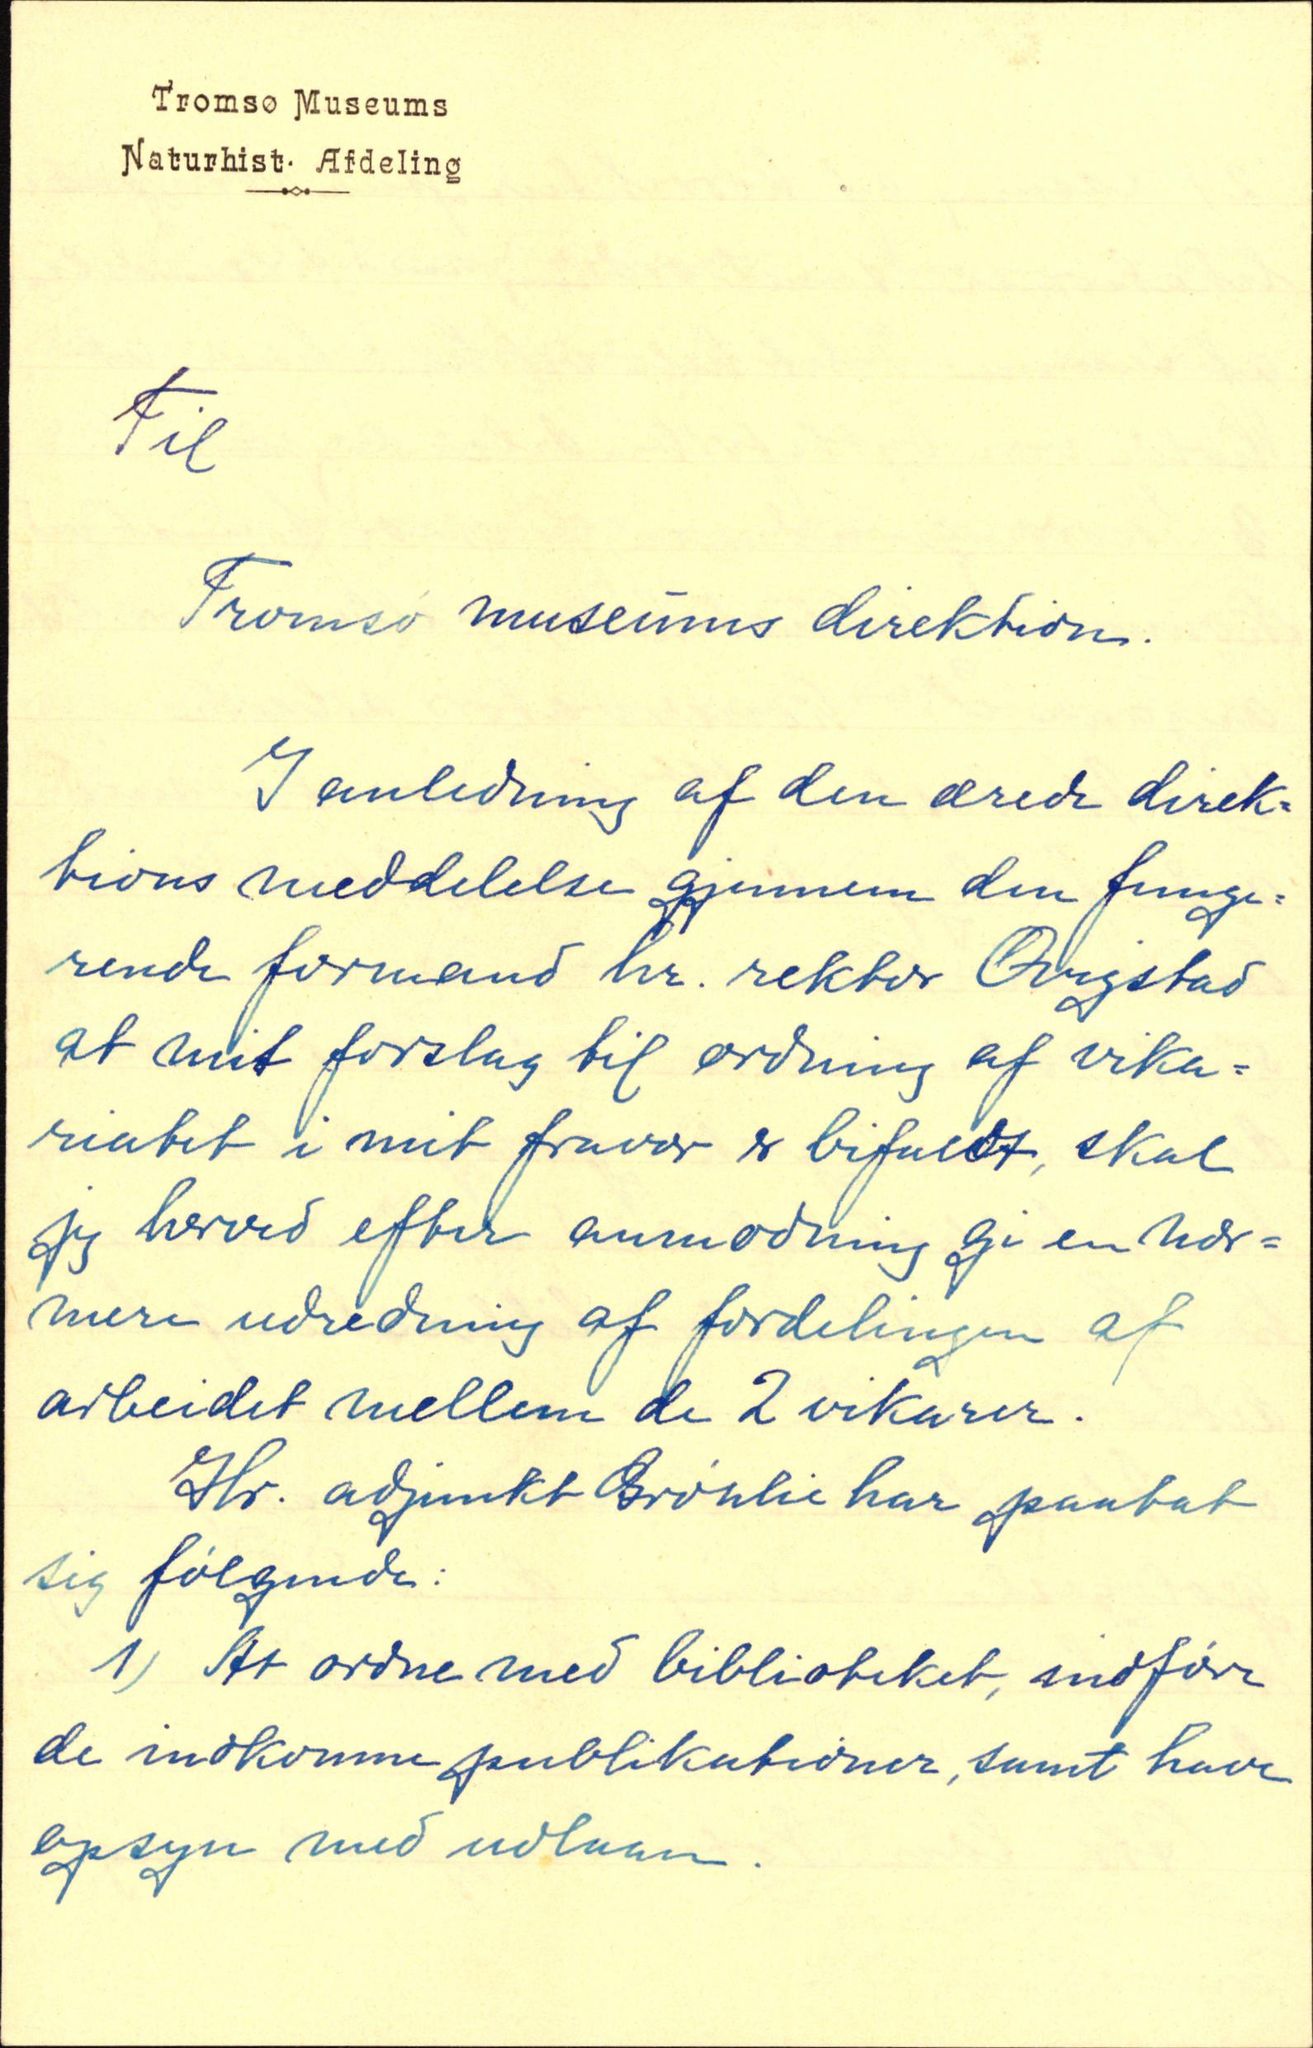 Tromsø Museums
Naturhist. Afdeling
Til
Tromsø museums direktion.
I anledning af den ærede direk-
tions meddelelse gjennem den funge-
rende formand hr. rektor Qvigstad
at mit forslag til ordning af vika-
riatet i mit fravær er bifaldt, skal
jeg herved efter anmodning gi en nær-
mere udredning af fordelingen af
arbeidet mellem de 2 vikarer.
Hr. adjunkt Grønlie har paatat
sig følgende:
1) At ordne med biblioteket, indføre
de indkomne publikationer, samt have
opsyn med udlaan.